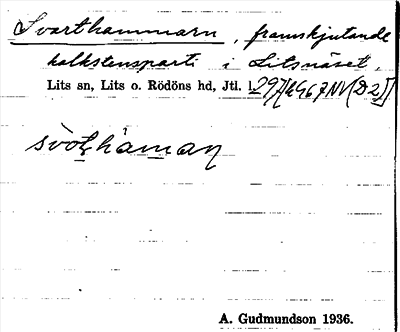 Svarthammarn, framskjutande
kalkstensparti i Litsnäset.
Lits sn, Lits o. Rödöns hd, Jtl.
A. Gudmundson 1936.